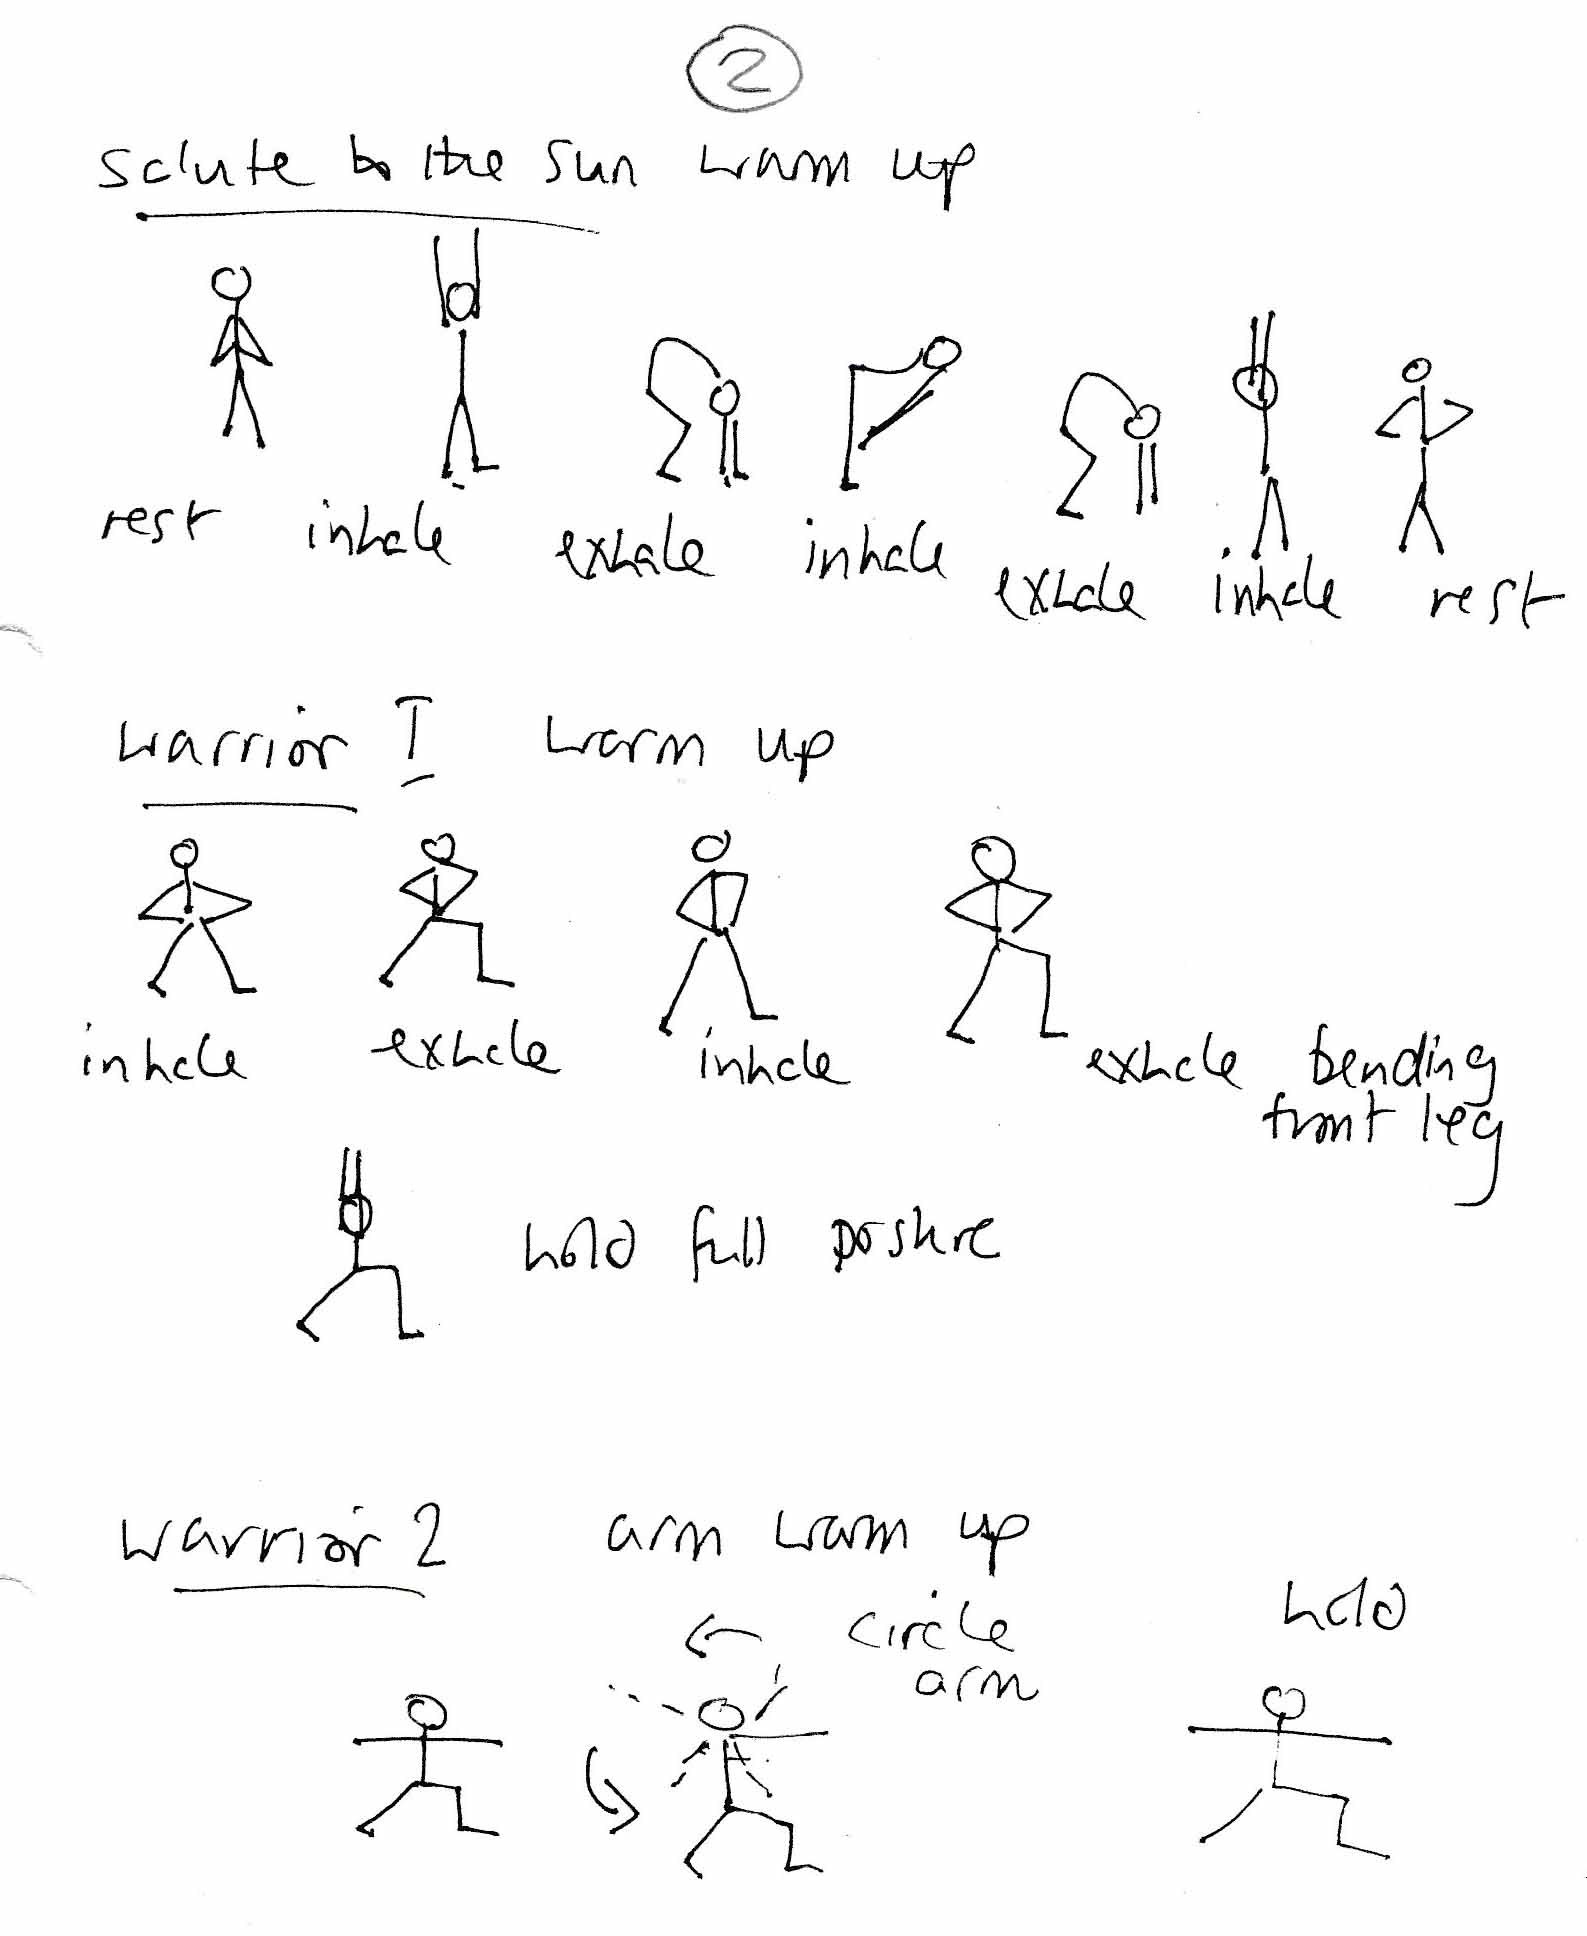 2
Salute to the Sun warm up
rest inhale exhale inhale exhale inhale rest
Warrior I warm up
inhale exhale inhale exhale bending
front leg
hold full posture
Warrior 2 arm warm up
hold
circle
arm